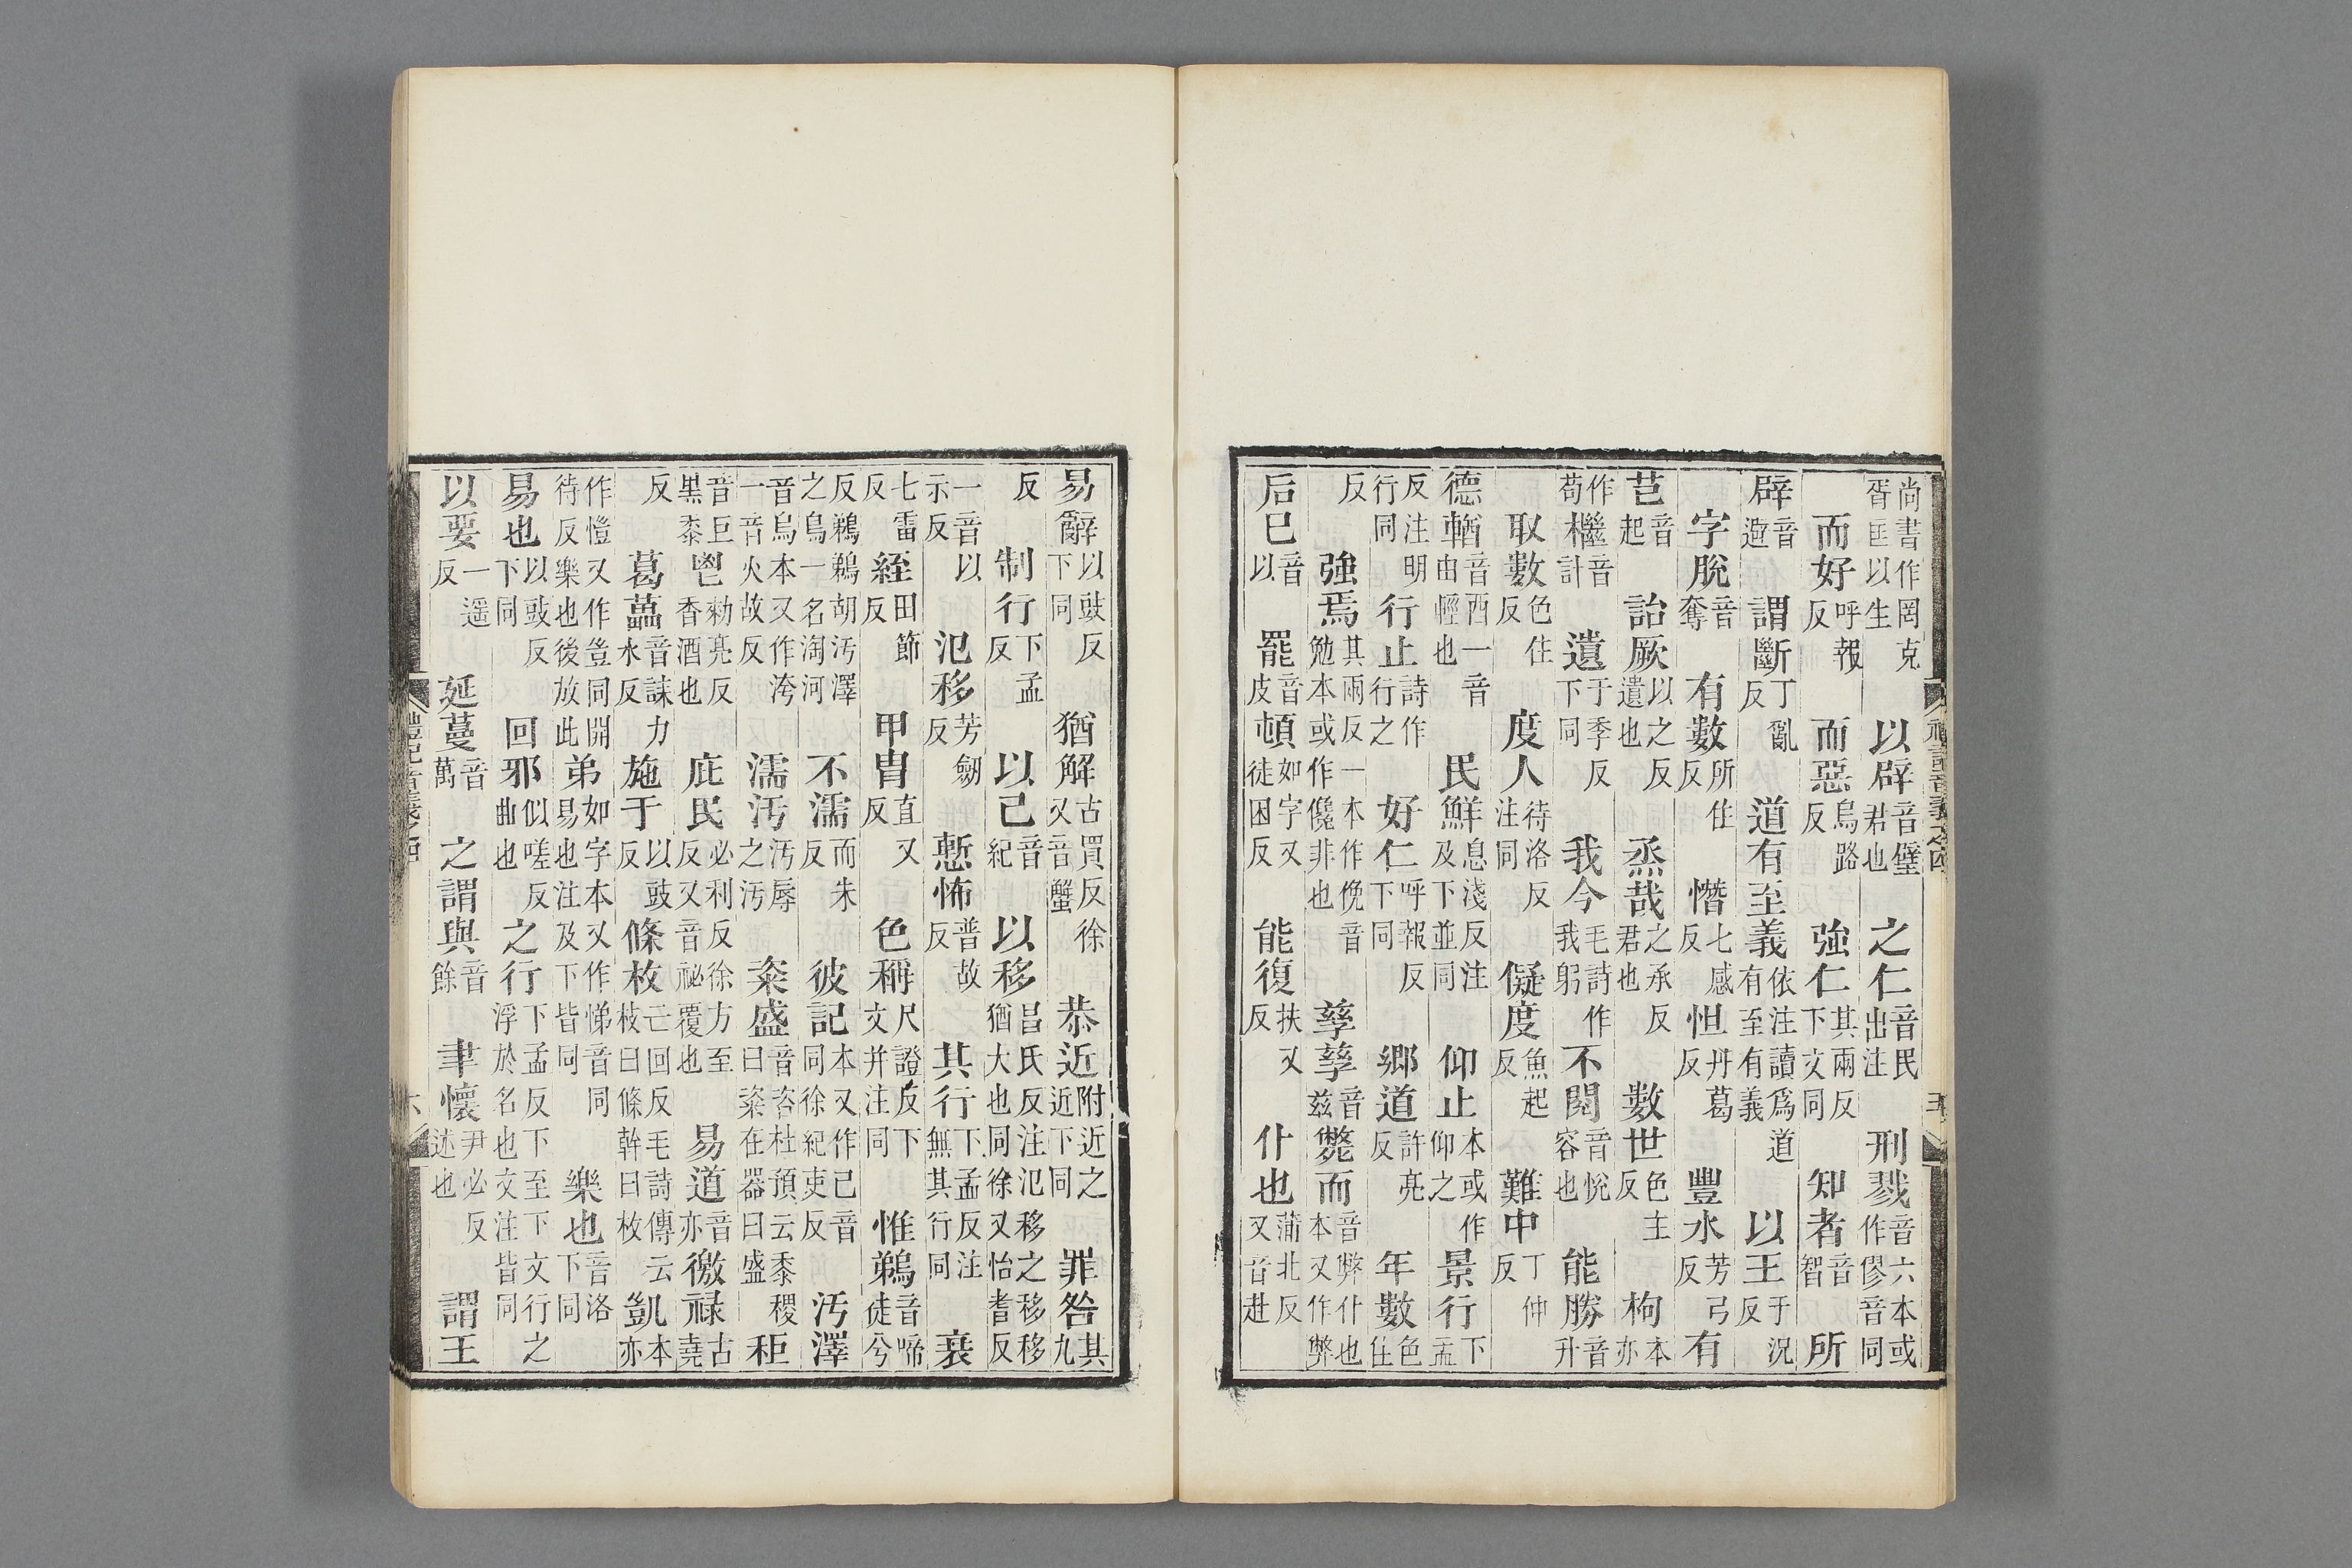 尚書作罔克胥匡以生　以辟音璧君也　之仁音民出注　刑戮音六本或作僇音同
而好呼報反　而惡烏路反　強仁其兩反下文同　知者音智　所
辟音避　謂斷丁亂反　道有至義依注讀爲道有至有義　以王于況反
字脫音奪　有數所住反　憯七感反　怛丹葛反　豐水芳弓反　有
芑音起　詒厥以之反遺也　烝哉之承反君也　數世色主反　枸本亦
作苟　檵音計　遺于季反下同　我今毛詩作我躬　不閱音悅容也　能勝音升
取數色住反　度人待洛反注同　儗度魚起反　難中丁仲反
德輶音酉一音由輕也　民鮮息淺反注及下並同　仰止本或作仰之　景行下孟
反注明行同　行止詩作行之　好仁呼報反下同　鄉道許亮反　年數色住
反　強焉其兩反一本作俛音勉本或作儳非也　孳孳音茲　斃而音弊仆也本又作弊
后已音以　罷音皮　頓如字又徒困反　能復扶又反　仆也蒲北反又音赴
禮記音義之四　五
易辭以豉反下同　猶解古買反徐又音蟹　恭近附近之近下同　罪咎其九
反　制行下孟反　以己音紀　以移昌氏反注氾移之移移猶大也同徐又怡耆反
一音以示反　氾移芳劒反　慙怖普故反　其行下孟反注無其行同　衰
七雷反　絰田節反　甲冑直又反　色稱尺證反下文并注同　惟鵜音啼徒兮
反鵜鵜胡汚澤之鳥一名淘河　不濡而朱反　彼記本又作己音同徐紀吏反　汚澤
音烏本又作洿一音火故反　濡汚汚辱之汚　粢盛音咨杜預云黍稷曰粢在器曰盛　秬
音巨黑黍　鬯勑亮反香酒也　庇民必利反徐方至反又音祕覆也　易道音亦　徼祿古堯
反　葛藟音誄力水反　施于以豉反　條枚亡回反毛詩傳云枝曰條幹曰枚　凱本亦
作愷又作豈同開待反樂也後放此　弟如字本又作悌音同易也注及下皆同　樂也音洛下同
易也以豉反下同　回邪似嗟反曲也　之行下孟反下至下文行之浮於名也文注皆同
以要一遥反　延蔓音萬　之謂與音餘　聿懷尹必反述也　謂王
禮記音義之四　六